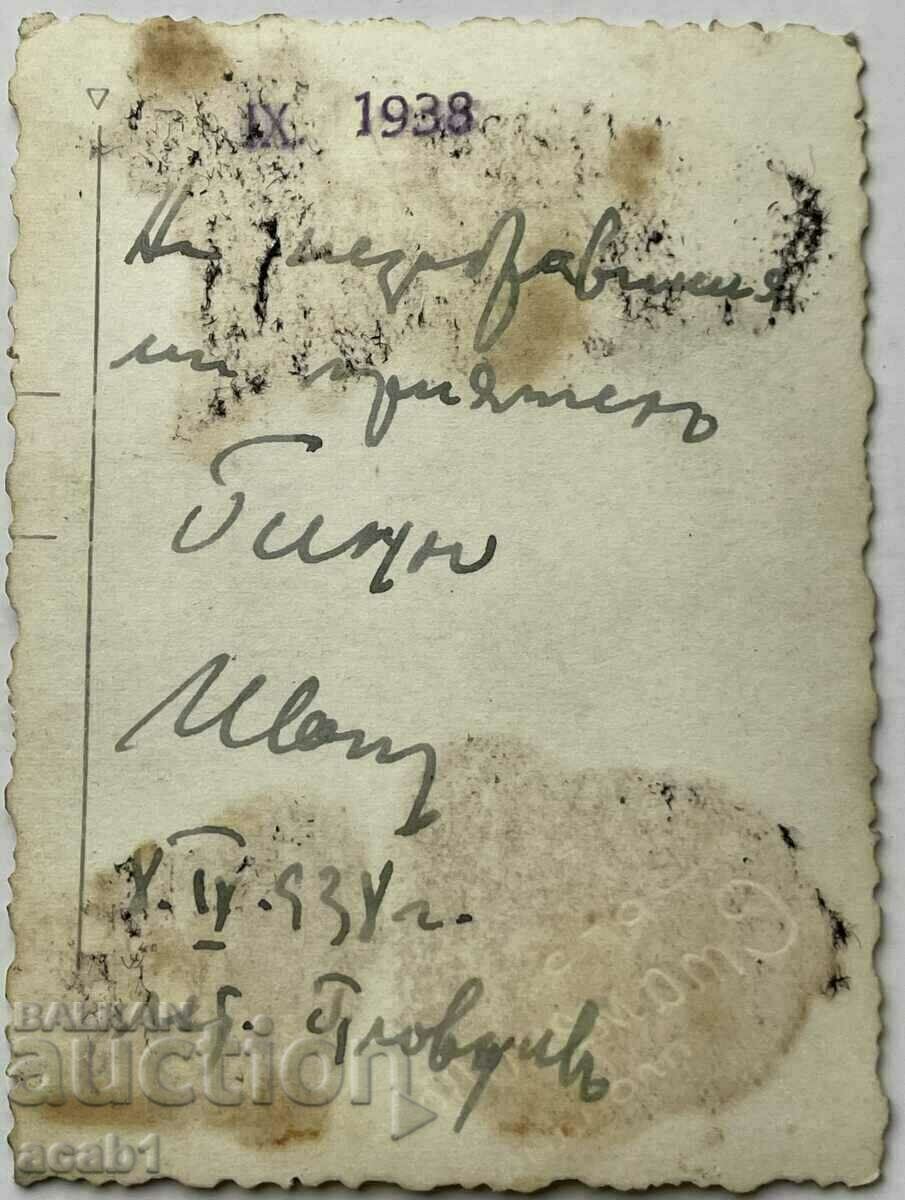 IX. 1938
На незабравимия
ми приятель
Иванъ
8.IX.938 г.
гр. Пловдивъ
BALKAN
auction
acab1